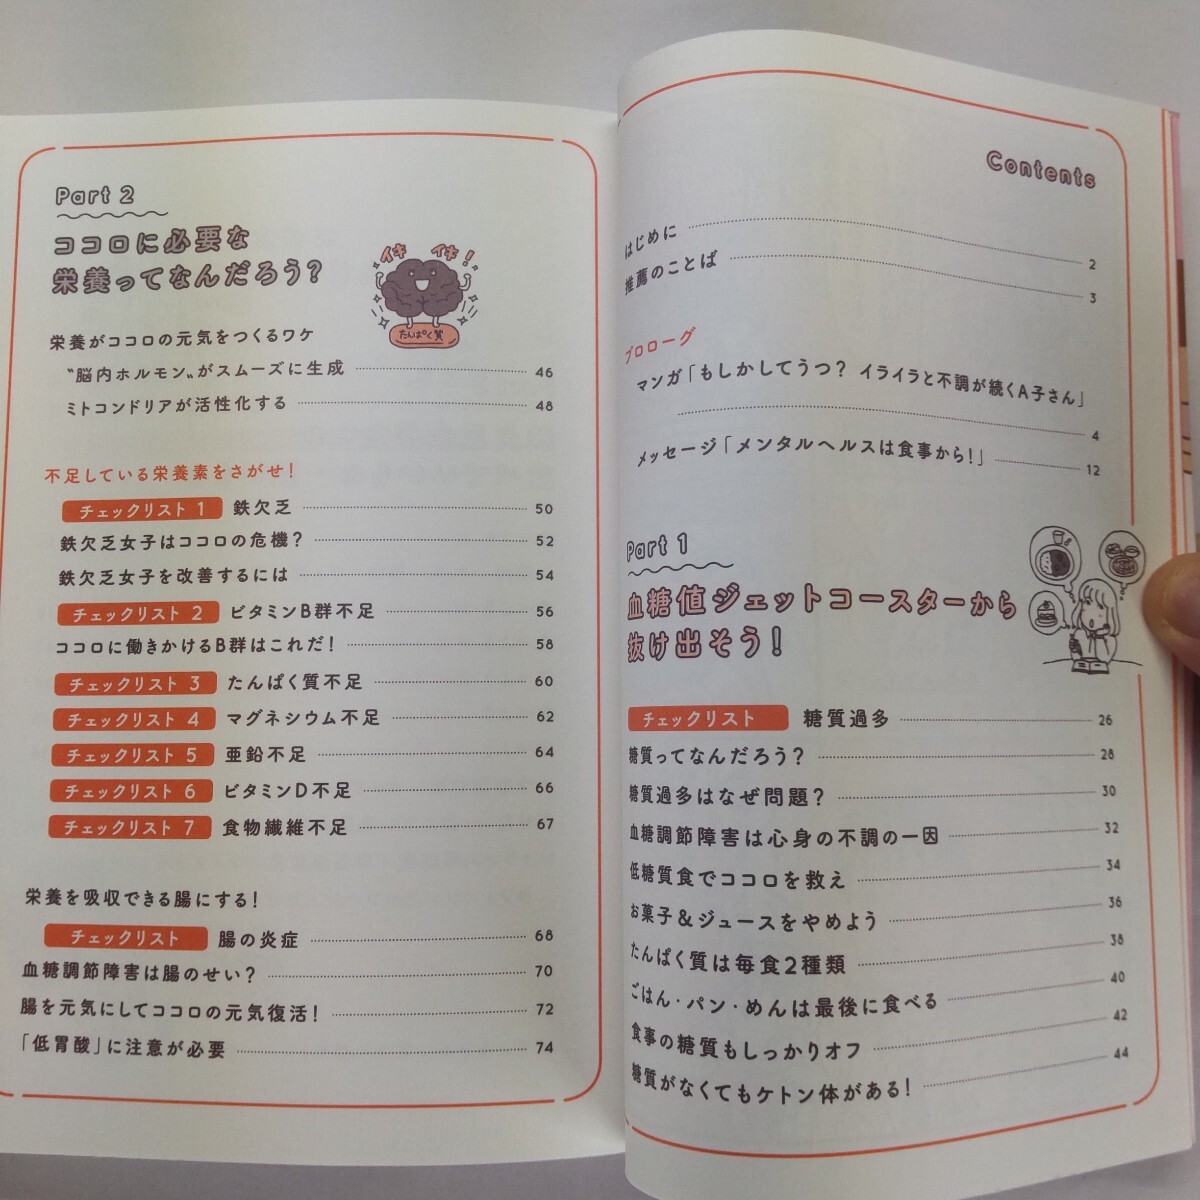 Contents
はじめに 2
推薦のことば 3
プロローグ
マンガ「もしかしてうつ? イライラと不調が続くA子さん」
4
メッセージ「メンタルヘルスは食事から!」 12
Part 1
血糖値ジェットコースターから
抜け出そう!
チェックリスト 糖質過多 26
糖質ってなんだろう? 28
糖質過多はなぜ問題? 30
血糖調節障害は心身の不調の一因 32
低糖質食でココロを救え 34
お菓子&ジュースをやめよう 36
たんぱく質は毎食2種類 38
ごはん・パン・めんは最後に食べる 40
食事の糖質もしっかりオフ 42
糖質がなくてもケトン体がある! 44
Part 2
ココロに必要な
栄養ってなんだろう?
イキ イキ!
たんぱく質
栄養がココロの元気をつくるワケ
〝脳内ホルモン〟がスムーズに生成 46
ミトコンドリアが活性化する 48
不足している栄養素をさがせ!
チェックリスト 1 鉄欠乏 50
鉄欠乏女子はココロの危機? 52
鉄欠乏女子を改善するには 54
チェックリスト 2 ビタミンB群不足 56
ココロに働きかけるB群はこれだ! 58
チェックリスト 3 たんぱく質不足 60
チェックリスト 4 マグネシウム不足 62
チェックリスト 5 亜鉛不足 64
チェックリスト 6 ビタミンD不足 66
チェックリスト 7 食物繊維不足 67
栄養を吸収できる腸にする!
チェックリスト 腸の炎症 68
血糖調節障害は腸のせい? 70
腸を元気にしてココロの元気復活! 72
「低胃酸」に注意が必要 74